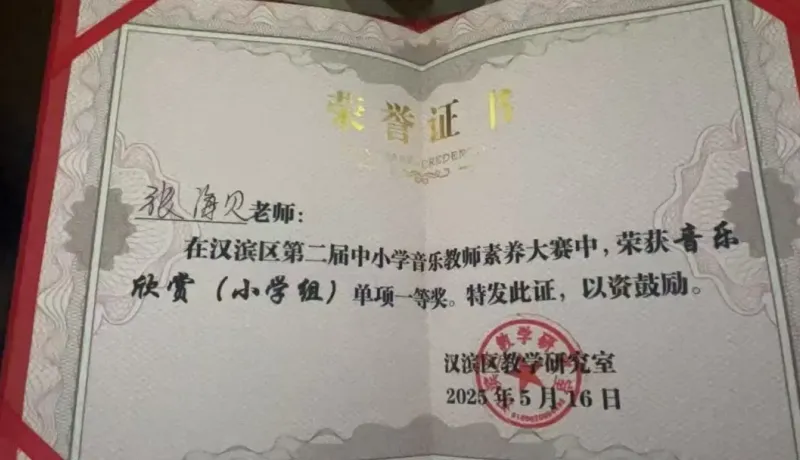 荣誉证书
张海贝老师：
在汉滨区第二届中小学音乐教师素养大赛中，荣获音乐
欣赏（小学组）单项一等奖。特发此证，以资鼓励。
汉滨区教学研究室
2025年5月16日